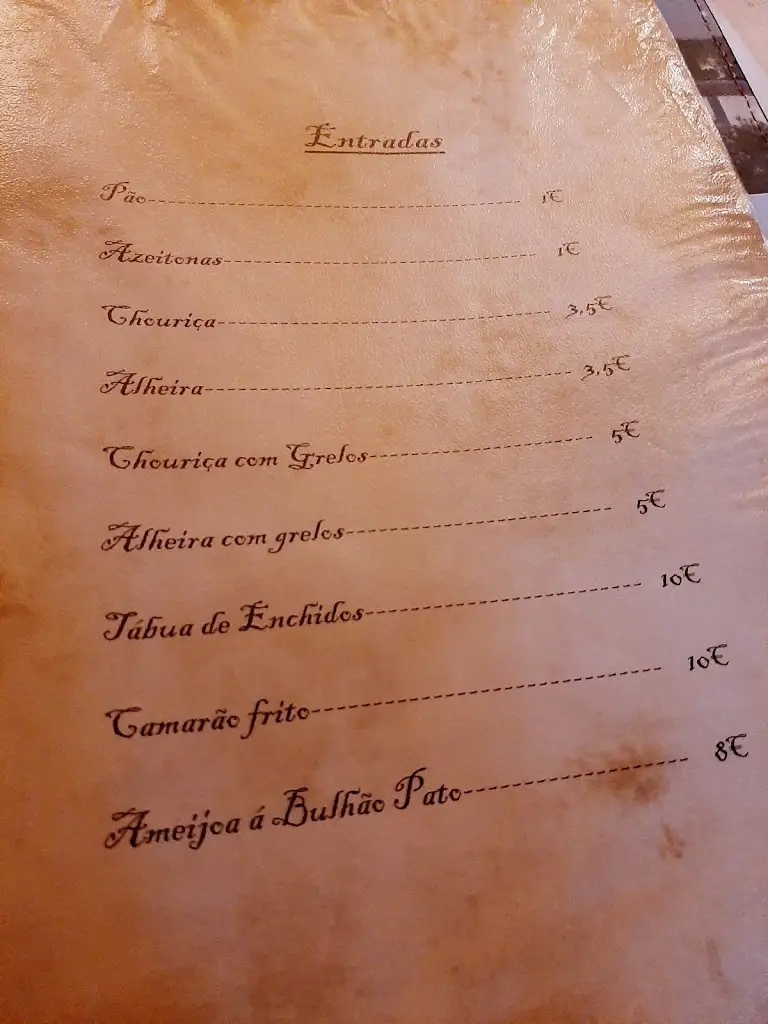 Entradas
Pão------------------------------------------------ 1€
Azeitonas---------------------------------------- 1€
Chouriça------------------------------------------ 3,5€
Alheira--------------------------------------------- 3,5€
Chouriça com Grelos--------------------------- 5€
Alheira com grelos------------------------------- 5€
Tábua de Enchidos------------------------------- 10€
Camarão frito-------------------------------------- 10€
Ameijoa á Bulhão Pato-------------------------- 8€